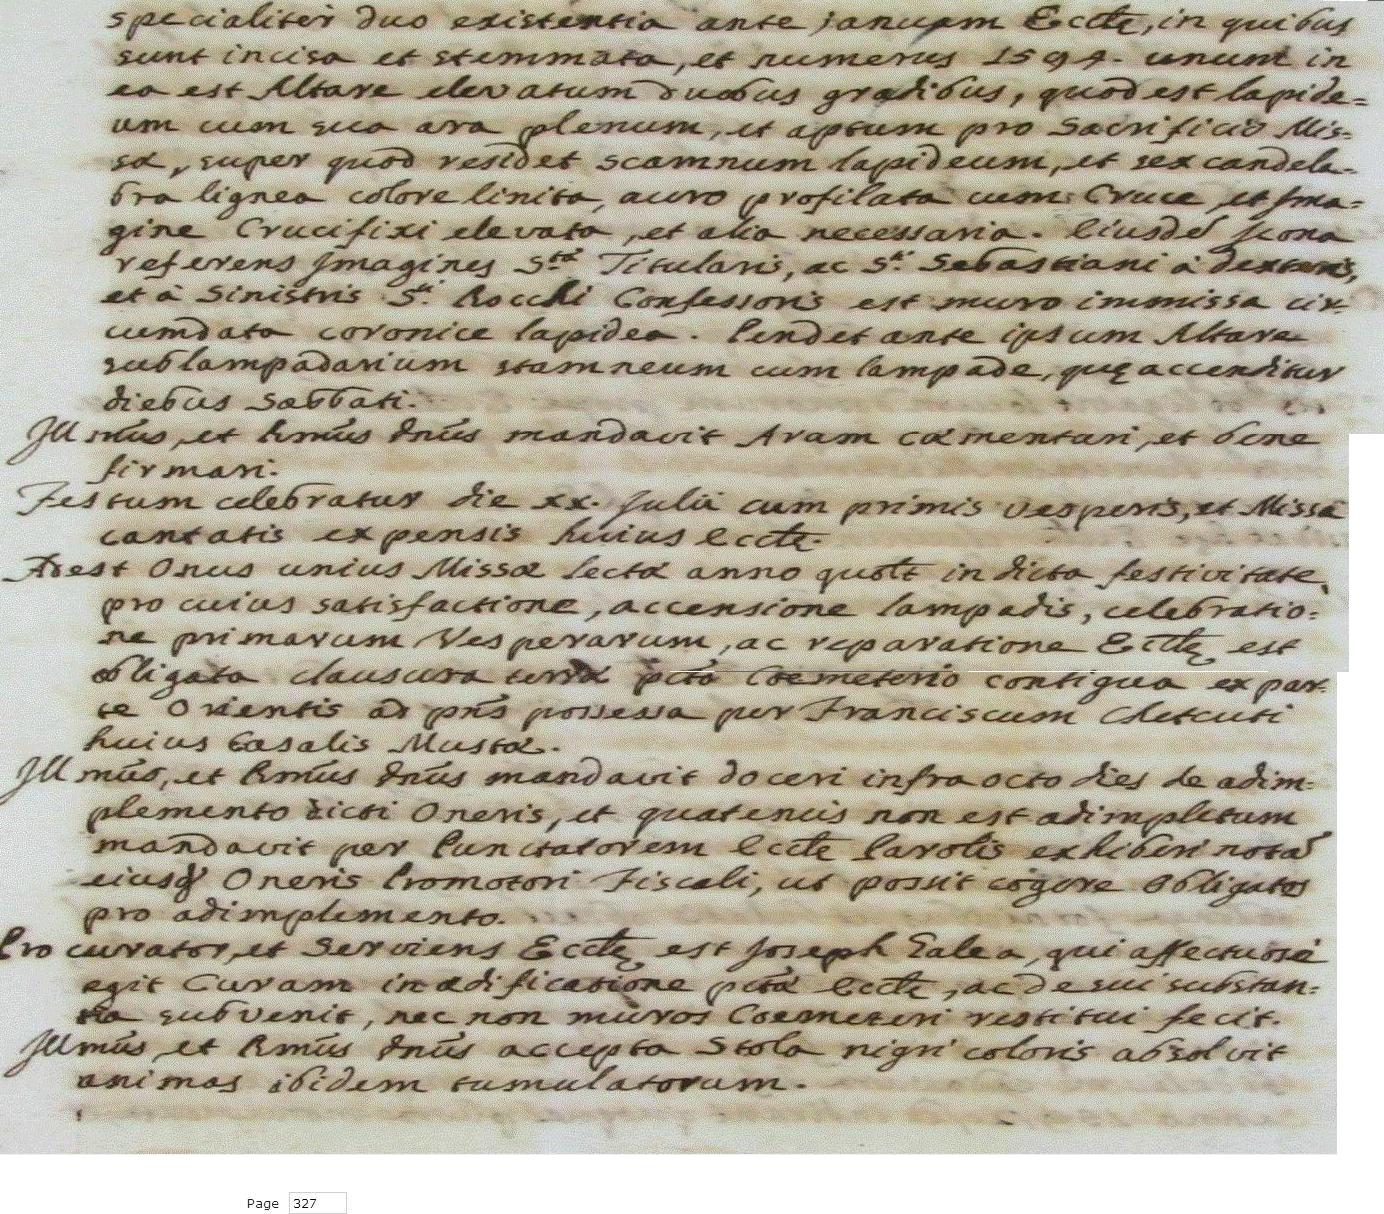 specialiter duo existentia ante januam Ecctę, in quibus
sunt incisa et stemmata, et numerus 1594. unum in
ea est Altare elevatum duobus gradibus, quod est lapide=
um cum sua ara plenum, et aptum pro Sacrificio Mis=
sæ, super quod residet scamnum lapideum, et sex candela=
bra lignea colore linita, auro profilata cum Cruce, et Ima=
gine Crucifixi elevata, et alia necessaria. Eiusdē Icona
referens Imagines S.tæ Titularis, ac S.ti Sebastiani à dextris,
et à Sinistris S.ti Rocchi Confessoris est muro immissa cir=
cumdata coronice lapidea. Pendet ante ipsum Altare
sublampadarium stamneum cum lampade, quę accenditur
diebus Sabbati.
Illmūs, et Rmūs dnūs mandavit Aram cæmentari, et bene
firmari.
Festum celebratur die xx. Julii cum primis vesperis, et Missa
cantatis expensis huius Ecctę.
Adest Onus unius Missæ lectæ anno quolt in dicta festivitate,
pro cuius satisfactione, accensione lampadis, celebratio=
ne primarum Vesperarum, ac reparatione Ecctę est
obligata clausura terræ pctō Coemeterio contigua ex par=
te Orientis ad pns possessa per Franciscum Chetcuti
huius Casalis Mustæ.
Illmūs, et Rmūs dnūs mandavit doceri infra octo dies de adim=
plemento dicti Oneris, et quatenus non est adimpletum
mandavit per Punctatorem Ecctę Parolis exhiberi notā
eiusdē Oneris Promotori Fiscali, ut possit cogere Obligatos
pro adimplemento.
Procurator, et Serviens Ecctę est Joseph Galea, qui affectuosè
egit Curam in ædificatione pctæ Ecctę, ac de sui substan=
tia subvenit, nec non muros Coemeterii restitui fecit.
Illmūs et Rmūs dnūs accepta Stola nigri coloris absolvit
animas ibidem tumulatorum.
Page 327